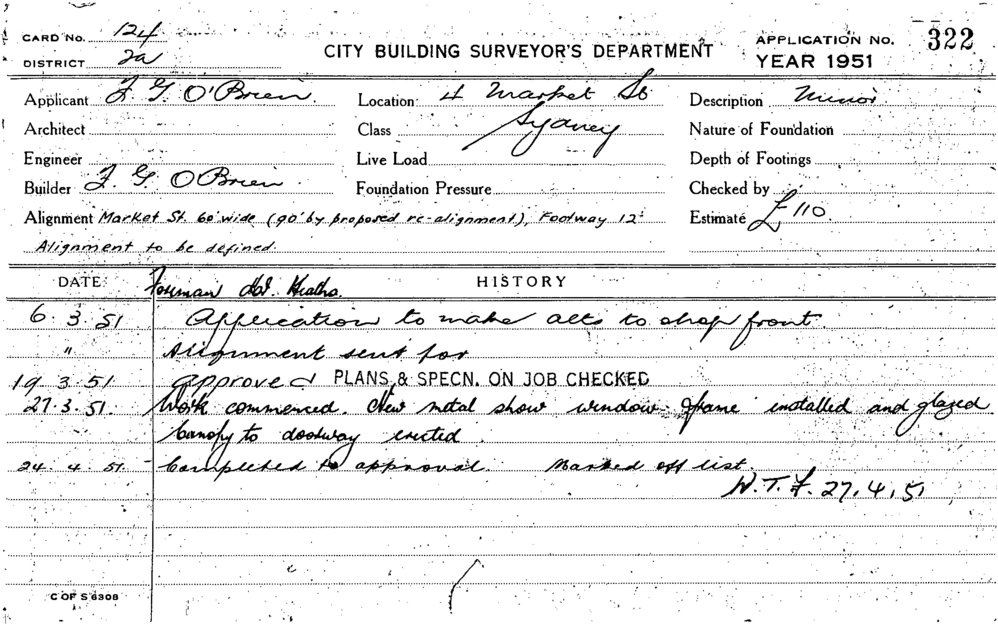 CARD No. 124
DISTRICT 2a
CITY BUILDING SURVEYOR'S DEPARTMENT
APPLICATION No. 322
YEAR 1951
Applicant F. G. O'Brien.
Location 4 Market St
Sydney
Description Minor
Architect
Class
Nature of Foundation
Engineer
Live Load
Depth of Footings
Builder F. G. O'Brien.
Foundation Pressure
Checked by
Alignment Market St. 60' wide (90' by proposed re-alignment), Footway 12'
Alignment to be defined.
Estimate £110
DATE
HISTORY
Foreman
6. 3. 51 Application to make alts to shop front.
" Alignment sent for
19. 3. 51 Approved PLANS & SPECN. ON JOB CHECKED
27.3.51. Work commenced. New metal show window frame installed and glazed
Canopy to doorway erected.
24. 4. 51. Completed to approval. Marked off list.
W.T.F. 27.4.51
C OF S 6308